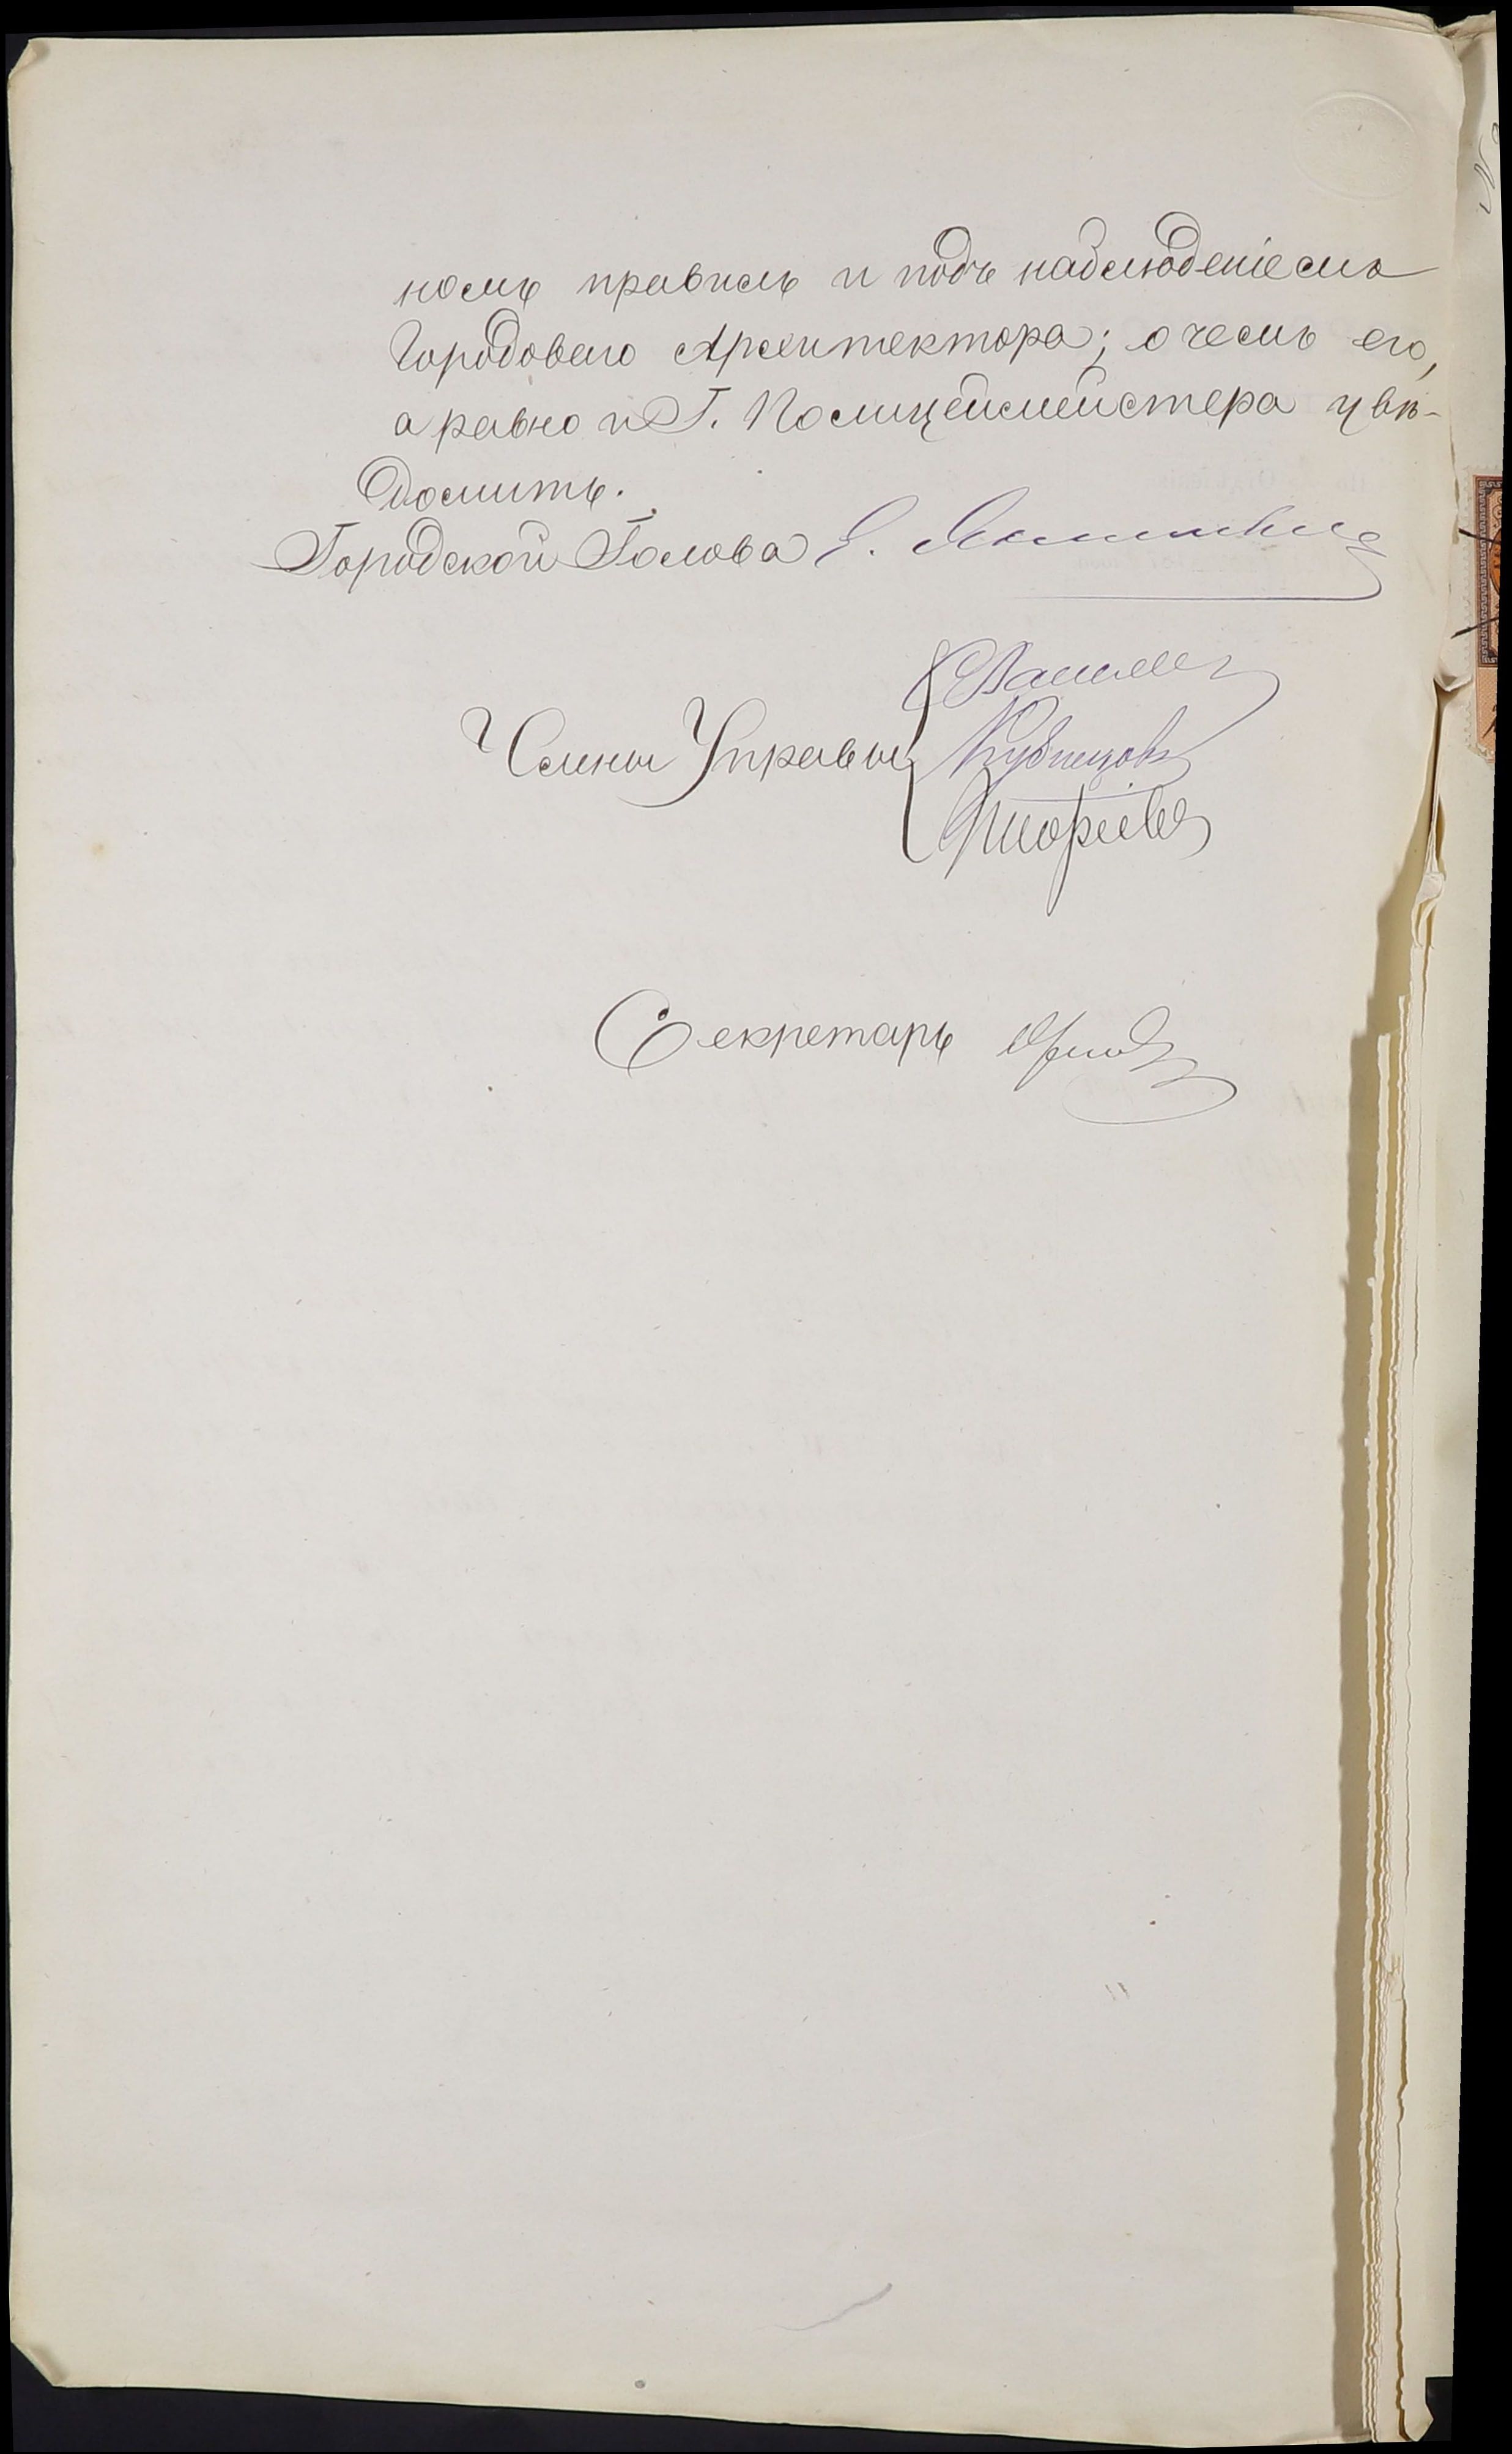 номъ правилъ и подъ наблюденіемъ
Городоваго Архитектора; о чемъ его,
а равно и Г. Полицеймейстера увѣ-
домить.
Городской Голова
Члены Управы Кузнецовъ
Секретарь